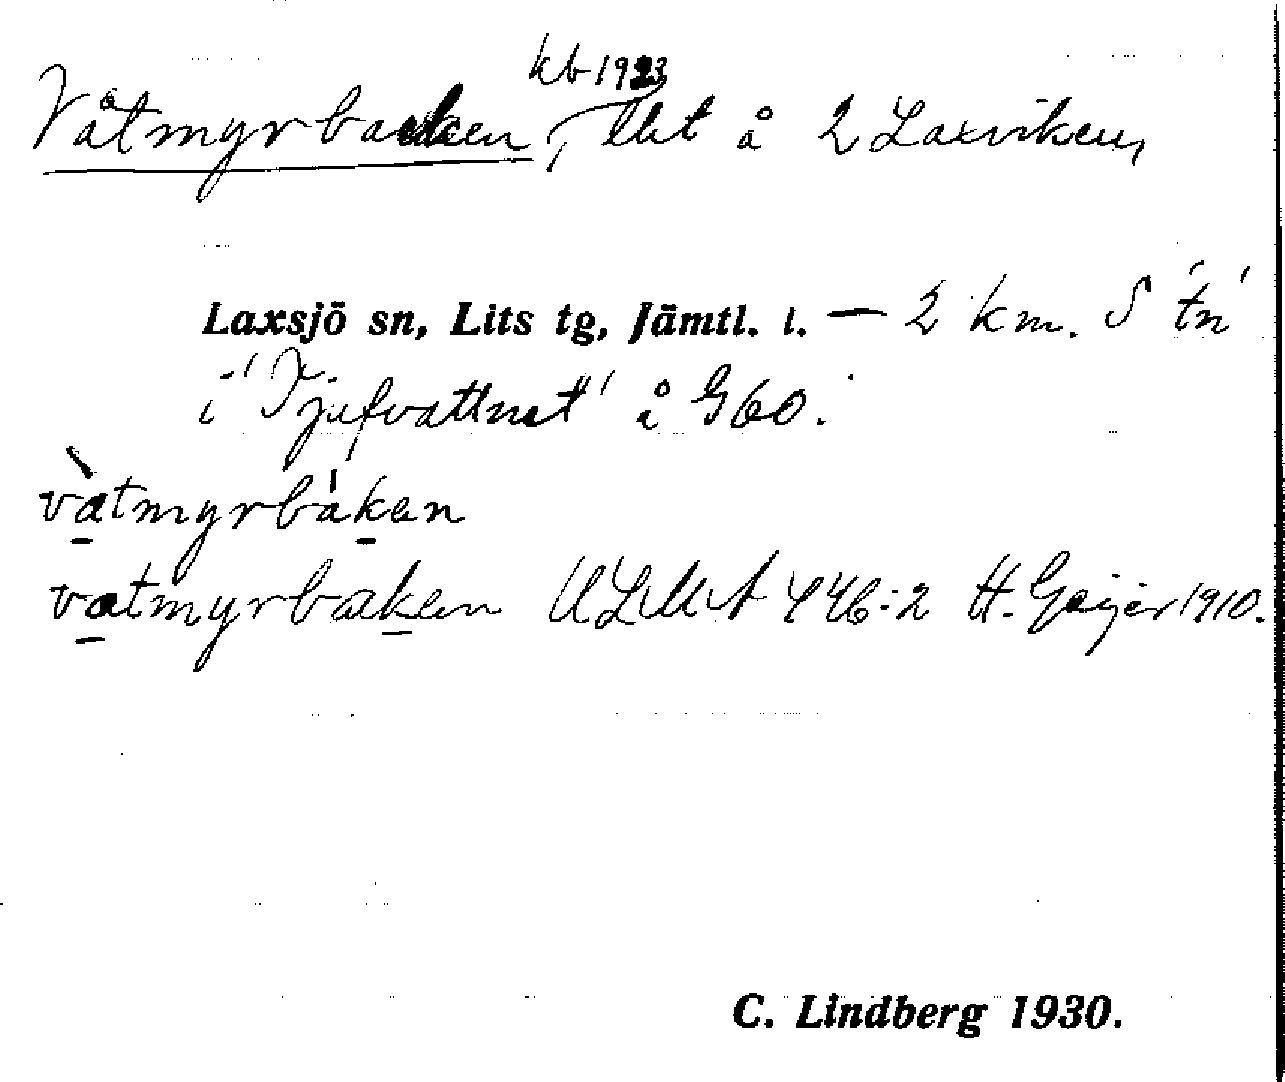 kb 1923
Våtmyrbacken, lht å 2 Laxviken,
Laxsjö sn, Lits tg, Jämtl. l. — 2 km. S 'tn'
i "Tjufvattnet" å G60.
vàtmyrbákan
vatmyrbakan ULMA 446:2 H. Geijer 1910.
C. Lindberg 1930.